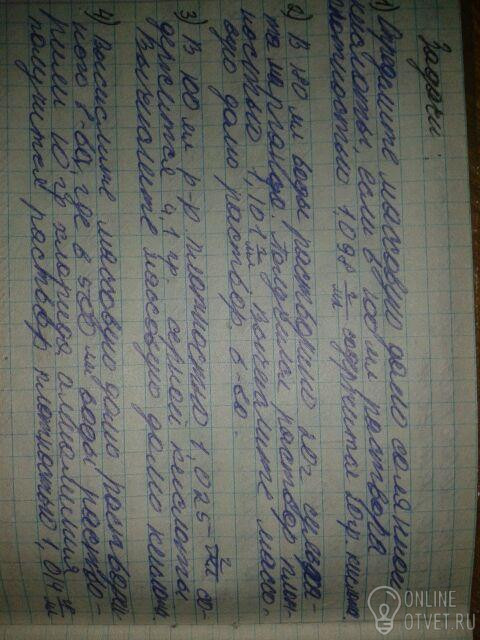 Задачи:
1) Определите массовую долю соляной
кислоты, если в 100 мл раствора
плотностью 1,098 г/мл содержится 20г кисло
2) В 180 мл воды растворено 20г сульфа-
та Получился раствор плот-
ностью 1,101 г/мл вычислите массо
вую долю раствор. в-ва.
3) В 100 мл р-р плотностью 1,025 г/мл со-
держится 4,1 гр. серной кислоты
Вычислите массовую долю кислоты
4) Вычислите массовую долю растворен
ного в-ва, где в мл воды раство-
рили 10 гр хлорида аммония
получится раствор плотностью 1,04 г/мл
ONLINE
OTVET.RU